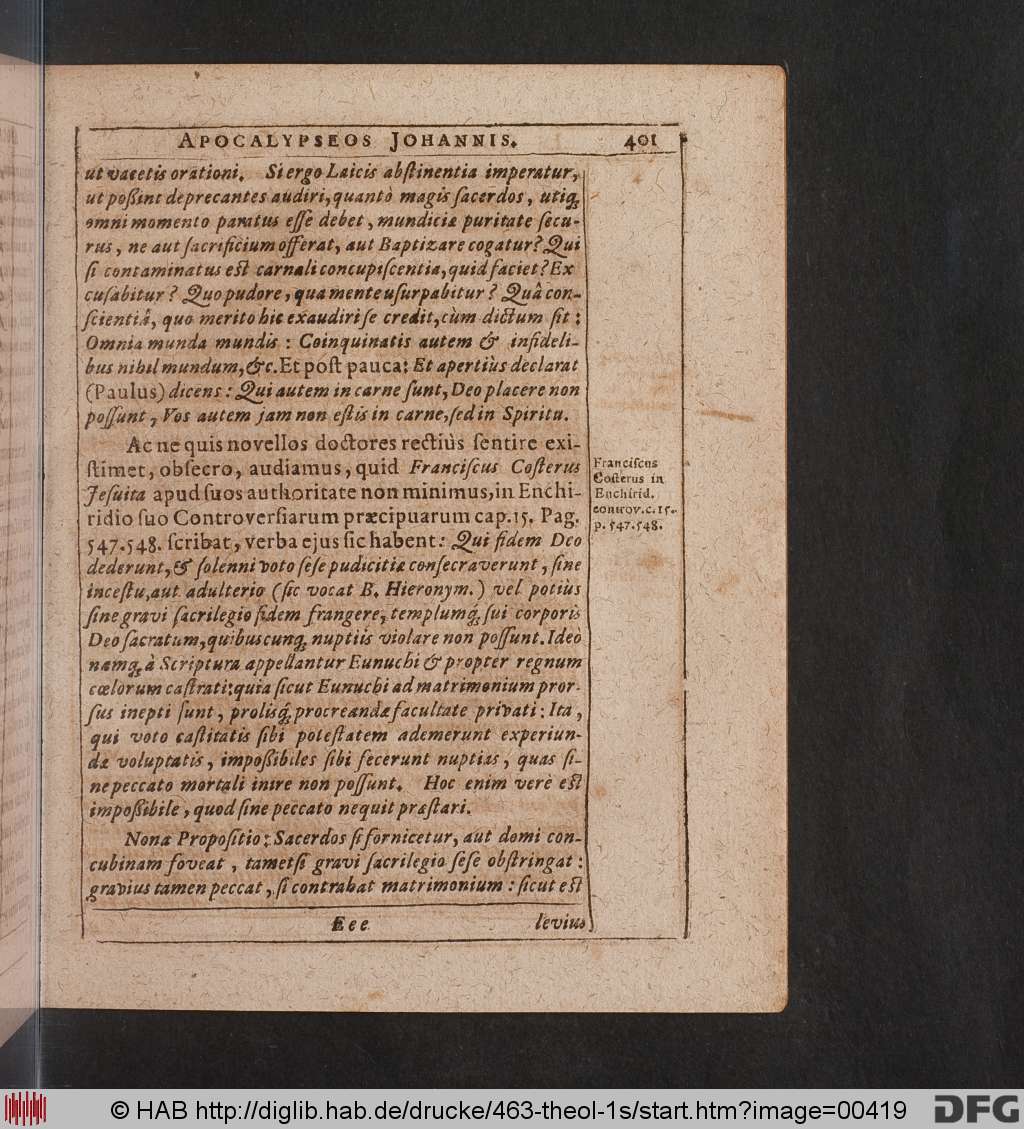 APOCALYPSEOS JOHANNIS. 401
ut vacetis orationi. Si ergo Laicis abſtinentia imperatur,
ut poßint deprecantes audiri, quantò magis ſacerdos, utiq;
omni momento paratus eſſe debet, mundiciæ puritate ſecu-
rus, ne aut ſacrificium offerat, aut Baptizare cogatur? Qui
ſi contaminatus est carnali concupiſcentia, quid faciet? Ex
cuſabitur? Quo pudore, qua mente uſurpabitur? Quâ con-
ſcientiâ, quo merito hic exaudiri ſe credit, cùm dictum ſit:
Omnia munda mundis: Coinquinatis autem & infideli-
bus nihil mundum, &c. Et poſt pauca: Et apertiùs declarat
(Paulus) dicens: Qui autem in carne ſunt, Deo placere non
poſſunt, Vos autem jam non eſtis in carne, ſed in Spiritu.
Ac ne quis novellos doctores rectiùs ſentire exi-
ſtimet, obſecro, audiamus, quid Franciſcus Coſterus
Jeſuita apud ſuos authoritate non minimus, in Enchi-
ridio ſuo Controverſiarum præcipuarum cap. 15. Pag.
547. 548. ſcribat, verba ejus ſic habent: Qui fidem Deo
dederunt, & ſolenni voto ſeſe pudicitiæ conſecraverunt, ſine
inceſtu, aut adulterio (ſic vocat B. Hieronym.) vel potiùs
ſine gravi ſacrilegio fidem frangere, templumq; ſui corporis
Deo ſacratum, quibuscunq; nuptiis violare non poſſunt. Ideò
namq; à Scriptura appellantur Eunuchi & propter regnum
cœlorum caſtrati: quia ſicut Eunuchi ad matrimonium pror-
ſus inepti ſunt, prolisq; procreandæ facultate privati: Ita,
qui voto caſtitatis ſibi poteſtatem ademerunt experiun-
dæ voluptatis, impoßibiles ſibi fecerunt nuptias, quas ſi-
ne peccato mortali inire non poſſunt. Hoc enim verè est
impoßibile, quod ſine peccato nequit præſtari.
Nona Propoſitio: Sacerdos ſi fornicetur, aut domi con-
cubinam foveat, tametſi gravi ſacrilegio ſeſe obſtringat:
gravius tamen peccat, ſi contrahat matrimonium: ſicut est
Eee levius
Franciſcus
Coſterus in
Enchirid.
controv. c. 15.
p. 547. 548.
© HAB http://diglib.hab.de/drucke/463-theol-1s/start.htm?image=00419
DFG